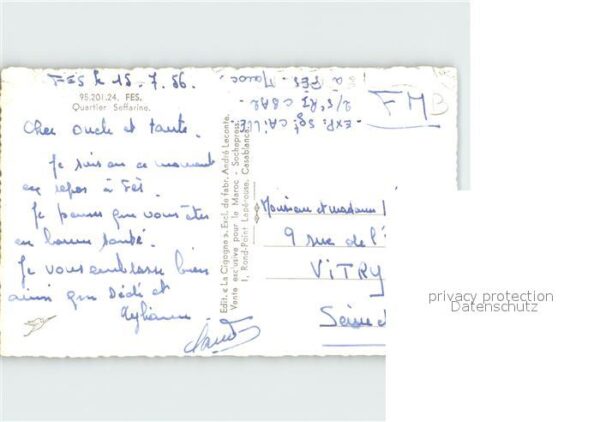 FES le 15. 7. 56.
95.201.24. FES.
Quartier Seffarine.
Cher oncle et tante.
Je suis en ce moment
en repos à Fès.
Je pense que vous êtes
en bonne santé.
Je vous embrasse bien
ainsi que Dédé et
Edit. « La Cigogne ». Excl. de fabr. André Leconte.
Vente exclusive pour le Maroc - Sochepress
1, Rond-Point Lapérouse, Casablanca.
EXP. Sgt CAILLE
à FES. Maroc.
FM
Monsieur et madame
9 rue de l'
VITRY
Seine
privacy protection
Datenschutz